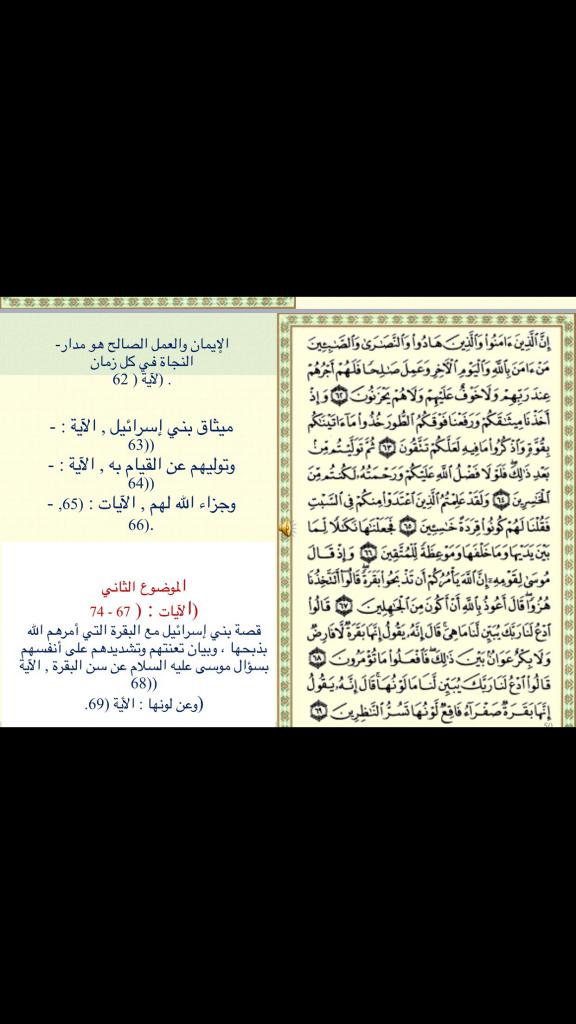 إِنَّ ٱلَّذِينَ ءَامَنُوا۟ وَٱلَّذِينَ هَادُوا۟ وَٱلنَّصَـٰرَىٰ وَٱلصَّـٰبِـِٔينَ
مَنْ ءَامَنَ بِٱللَّهِ وَٱلْيَوْمِ ٱلْـَٔاخِرِ وَعَمِلَ صَـٰلِحًا فَلَهُمْ أَجْرُهُمْ
عِندَ رَبِّهِمْ وَلَا خَوْفٌ عَلَيْهِمْ وَلَا هُمْ يَحْزَنُونَ ٦٢ وَإِذْ
أَخَذْنَا مِيثَـٰقَكُمْ وَرَفَعْنَا فَوْقَكُمُ ٱلطُّورَ خُذُوا۟ مَآ ءَاتَيْنَـٰكُم
بِقُوَّةٍ وَٱذْكُرُوا۟ مَا فِيهِ لَعَلَّكُمْ تَتَّقُونَ ٦٣ ثُمَّ تَوَلَّيْتُم مِّنۢ
بَعْدِ ذَٰلِكَ ۖ فَلَوْلَا فَضْلُ ٱللَّهِ عَلَيْكُمْ وَرَحْمَتُهُۥ لَكُنتُم مِّنَ
ٱلْخَـٰسِرِينَ ٦٤ وَلَقَدْ عَلِمْتُمُ ٱلَّذِينَ ٱعْتَدَوْا۟ مِنكُمْ فِى ٱلسَّبْتِ
فَقُلْنَا لَهُمْ كُونُوا۟ قِرَدَةً خَـٰسِـِٔينَ ٦٥ فَجَعَلْنَـٰهَا نَكَـٰلًا لِّمَا
بَيْنَ يَدَيْهَا وَمَا خَلْفَهَا وَمَوْعِظَةً لِّلْمُتَّقِينَ ٦٦ وَإِذْ قَالَ
مُوسَىٰ لِقَوْمِهِۦٓ إِنَّ ٱللَّهَ يَأْمُرُكُمْ أَن تَذْبَحُوا۟ بَقَرَةً ۖ قَالُوٓا۟ أَتَتَّخِذُنَا
هُزُوًا ۖ قَالَ أَعُوذُ بِٱللَّهِ أَنْ أَكُونَ مِنَ ٱلْجَـٰهِلِينَ ٦٧ قَالُوا۟
ٱدْعُ لَنَا رَبَّكَ يُبَيِّن لَّنَا مَا هِىَ ۚ قَالَ إِنَّهُۥ يَقُولُ إِنَّهَا بَقَرَةٌ لَّا فَارِضٌ
وَلَا بِكْرٌ عَوَانٌۢ بَيْنَ ذَٰلِكَ ۖ فَٱفْعَلُوا۟ مَا تُؤْمَرُونَ ٦٨
قَالُوا۟ ٱدْعُ لَنَا رَبَّكَ يُبَيِّن لَّنَا مَا لَوْنُهَا ۚ قَالَ إِنَّهُۥ يَقُولُ
إِنَّهَا بَقَرَةٌ صَفْرَآءُ فَاقِعٌ لَّوْنُهَا تَسُرُّ ٱلنَّـٰظِرِينَ ٦٩
الإيمان والعمل الصالح هو مدار-
النجاة في كل زمان
. (لآية ( 62
ميثاق بني إسرائيل , الآية : -
((63
وتوليهم عن القيام به , الآية : -
((64
وجزاء الله لهم , الآيات : (65, -
.(66
الموضوع الثاني
(الآيات : ( 67 - 74
قصة بني إسرائيل مع البقرة التي أمرهم الله
بذبحها ، وبيان تعنتهم وتشديدهم على أنفسهم
بسؤال موسى عليه السلام عن سن البقرة , الآية
((68
(وعن لونها : الأية (69.